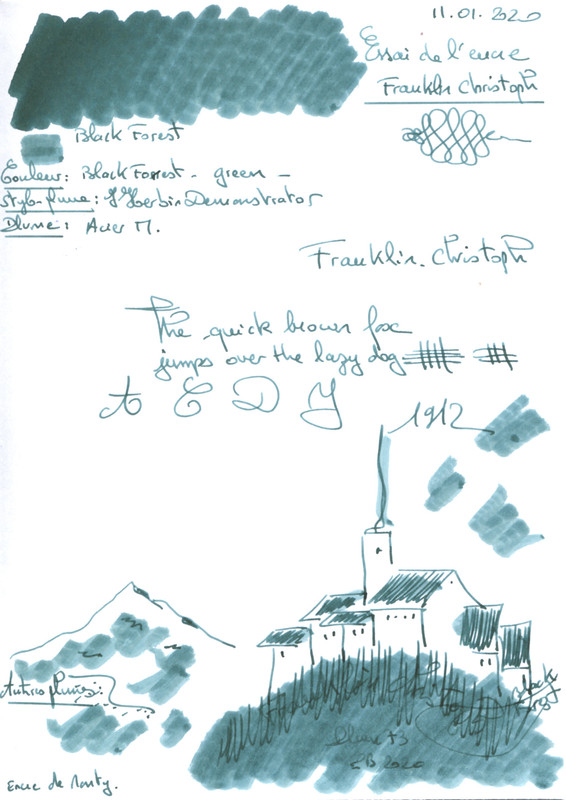 11.01.2020
Essai de l'encre
Franklin Christoph
Black Forest
Couleur: Black Forrest - green -
Stylo-plume: J. Herbin Demonstrator
Plume: Acier M.
Franklin. Christoph
The quick brown fox
jumps over the lazy dog
A E D J
1912
Black
2020
Encre de Monty.